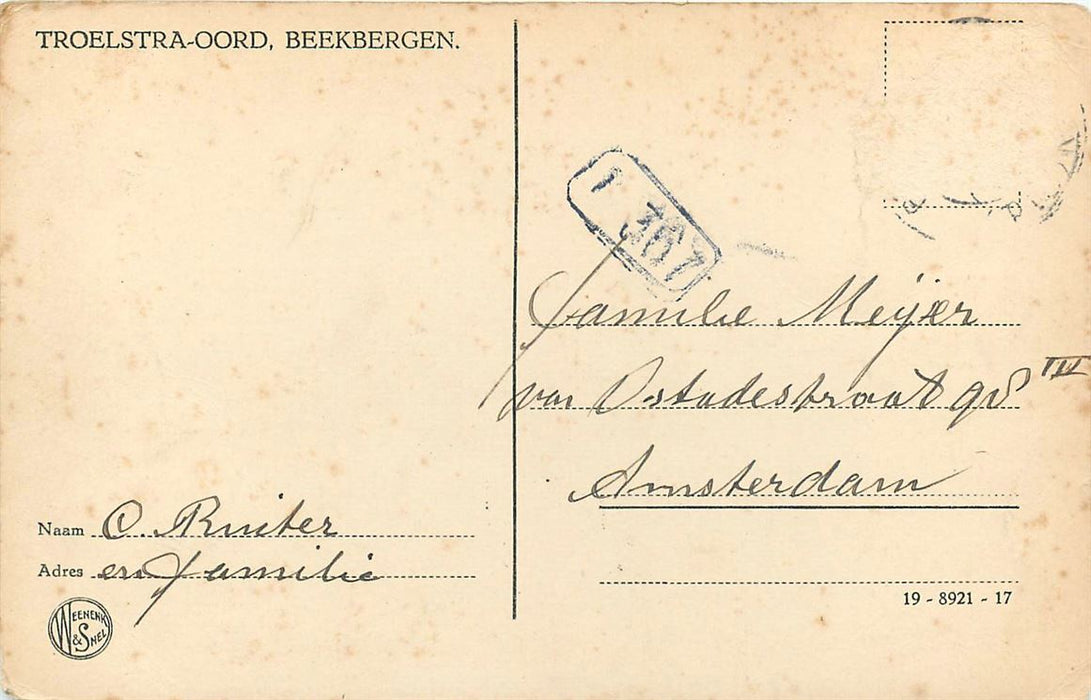 TROELSTRA-OORD, BEEKBERGEN.
367
Familie Meyer
van Ostadestraat 98 III
Amsterdam
Naam C. Ruiter
Adres en familie
WEENENK & SNEL
19 - 8921 - 17